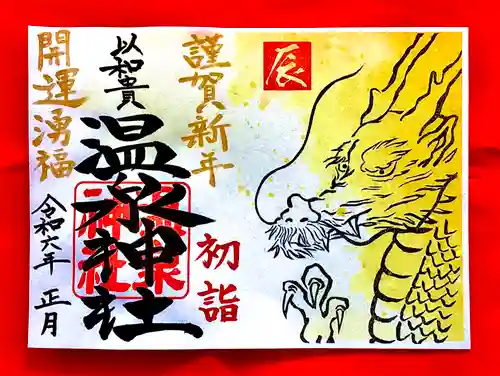 謹賀新年
辰
初詣
以和貴
温泉神社
温泉神社
開運湧福
令和六年 正月